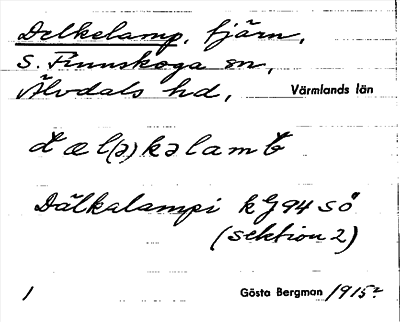 Delkelamp, tjärn,
S. Finnskoga sn,
Älvdals hd, Värmlands län
d æ l(ə) k ə l a m b
Dälkalampi kg 94 s ö
(sektion 2)
1 Gösta Bergman 1915